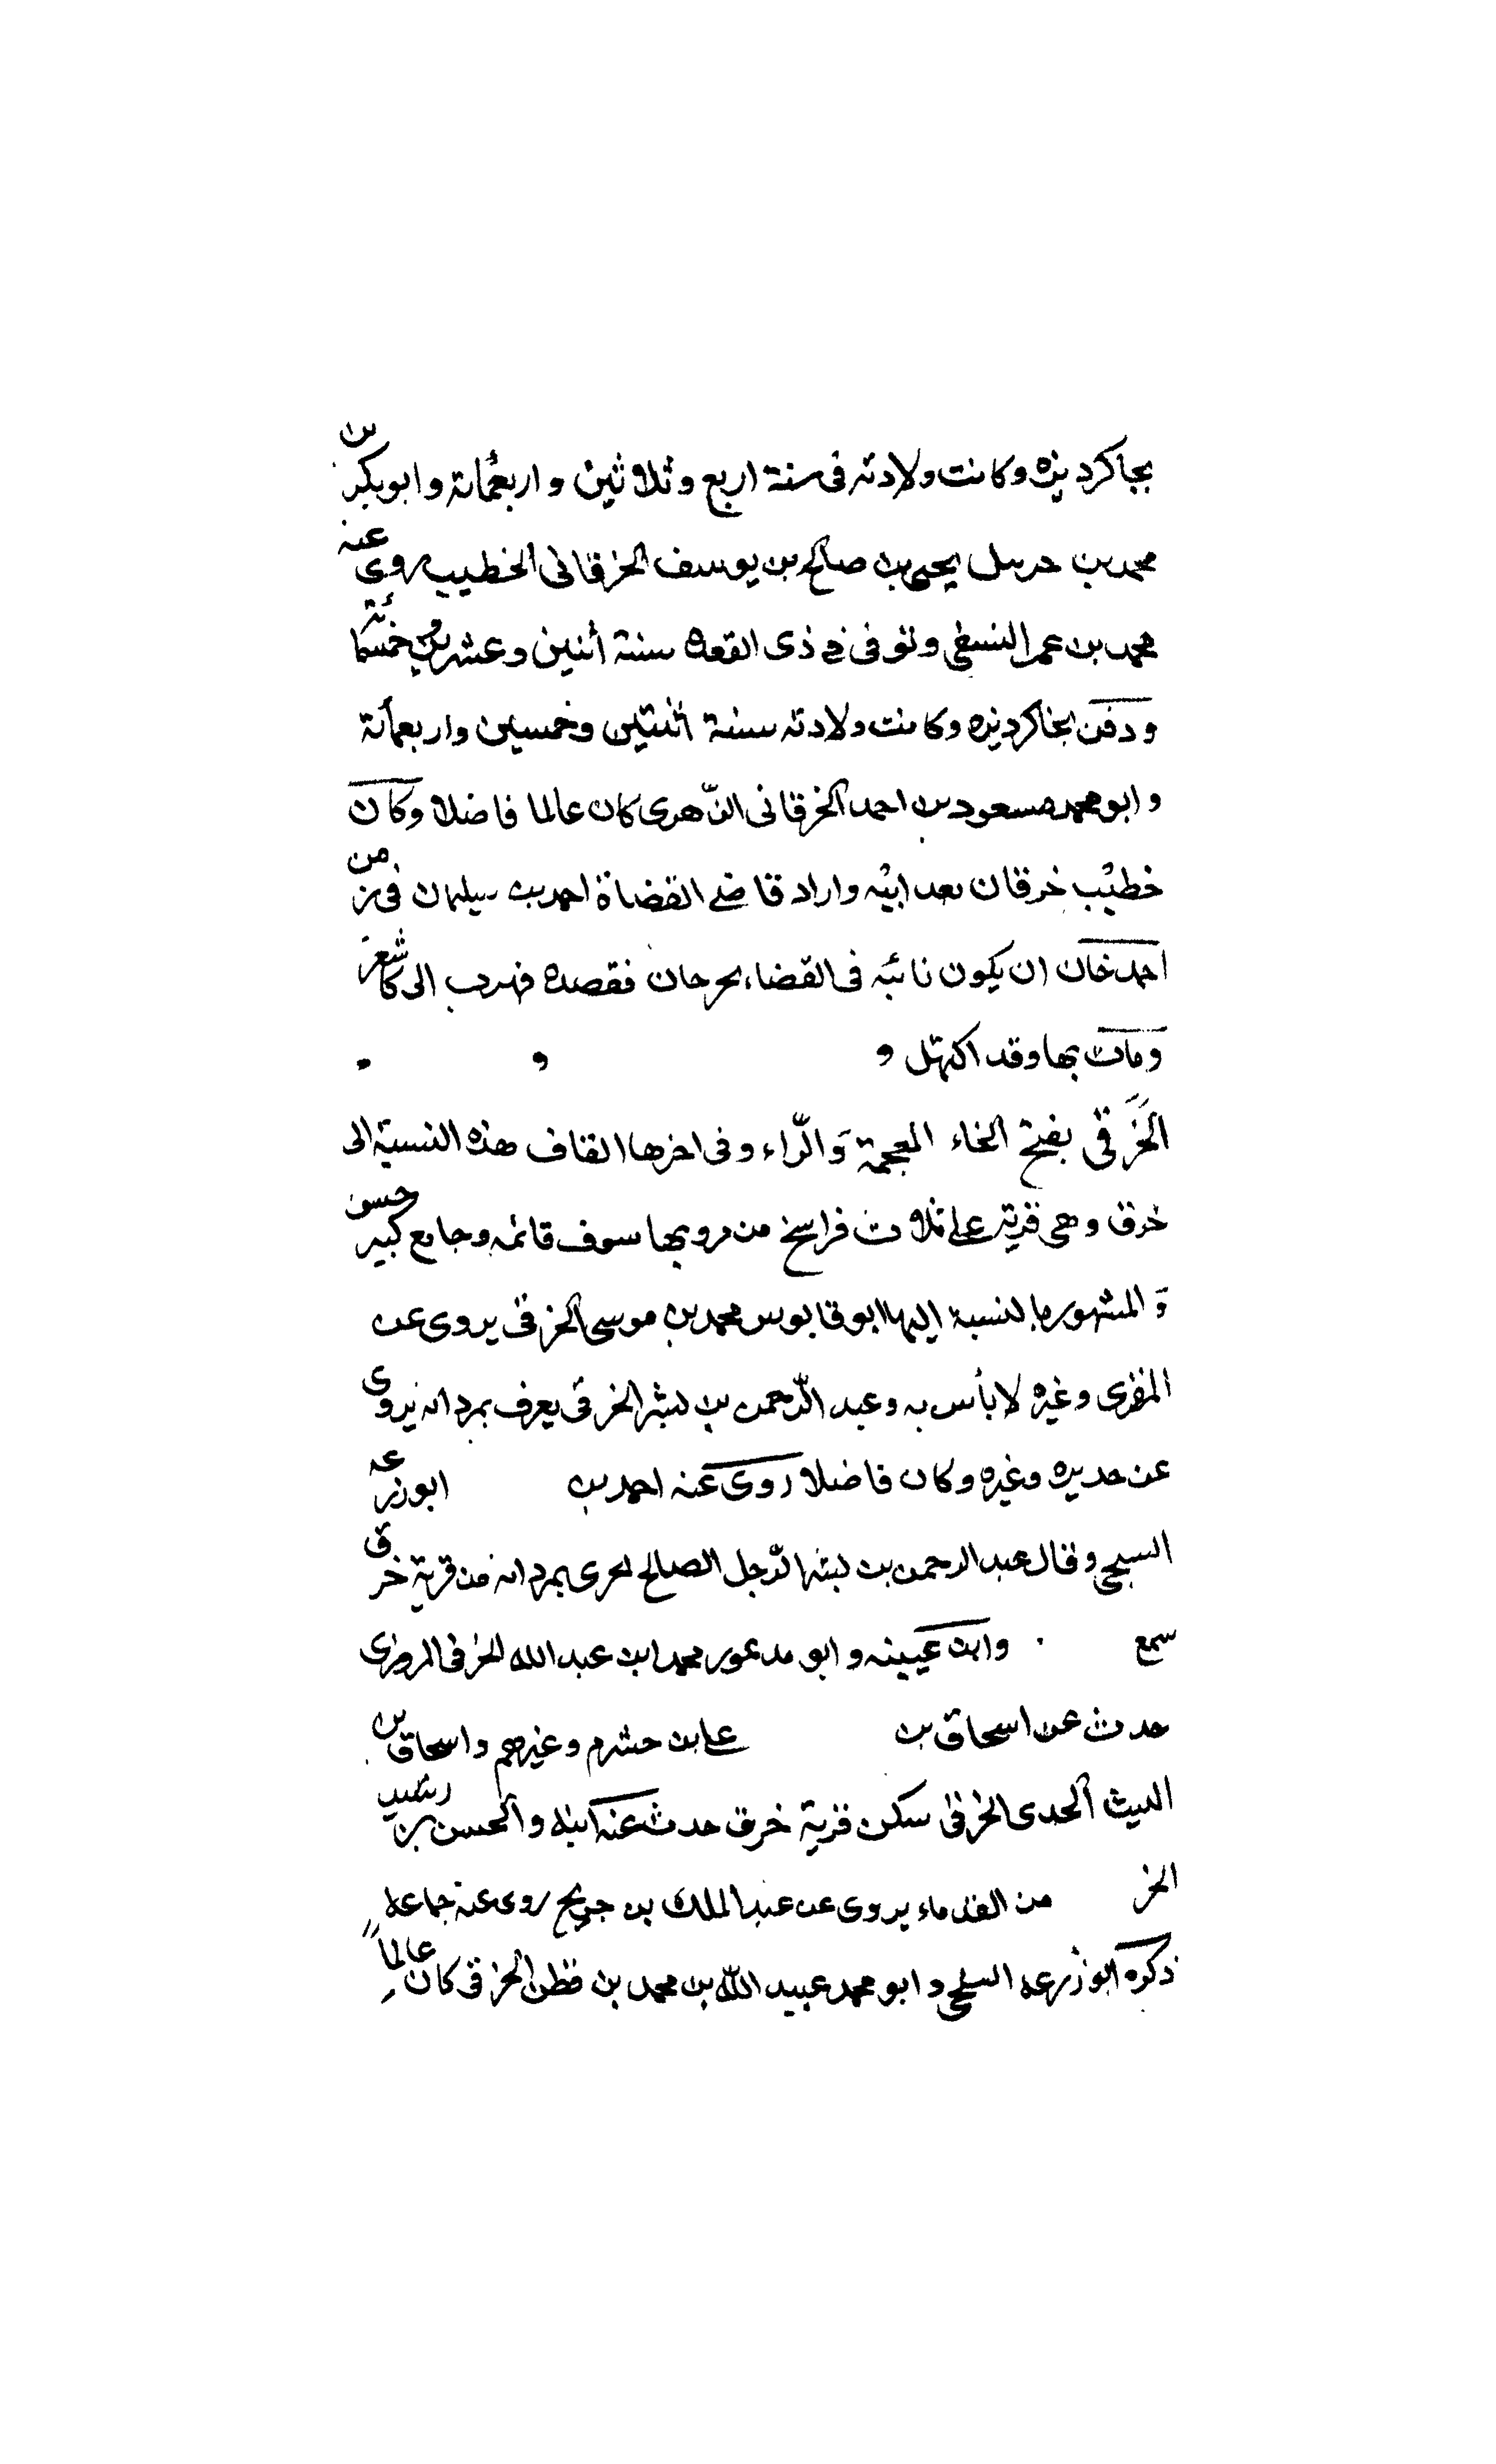 بجاكرديزه وكانت ولادته فى سنة اربع وثلاثين واربعمائة وابوبكر بن
محمد بن يحيى بن صالح بن يوسف الخرقانى الخطيب روى عنه
محمد بن عمر النسفى وتوفى فى ذى القعده سنة أثنين وعشرين وخمسمائة
ودفن بجاكرديزه وكانت ولادته سنة اثنتين وخمسين واربعمائة
وابو محمد مسعود بن احمد الخرقانى الدّهرى كان عالما فاضلا وكان
خطيب خرقان بعد ابيه واراد قاضى القضاة احمد بن سليمان فى زمن
احمد خان ان يكون نائبه فى القضاء بحرحان فقصده فهرب الى كاشغر
ومات بها وقد اكتهل و و
الخَرَقى بفتح الخاء المعجمة وَالرّاء وفى اخرها القاف هذه النسبة الى
خرق وهى قرية على ثلاث فراسخ من مرو بها سوق قائمه وجامع كبير حسن
وَالمشهور بالنسبة اليها ابو قابوس محمد بن موسى الخرقى يروى عن
المقرى وغيره لا بأس به وعبد الرّحمن بن بشر الخرقى يعرف بمردانه يروى
عن وغيره وكان فاضلا روى عنه احمد بن ابو زرعه
السبحى وقال عبد الرحمن بن بشر الرّجل الصالح بمردانه من قرية خرق
سمع وابن عيينه وابو مدعور محمد ابن عبد الله الخرقى المروزى
حدث عن اسحاق بن على بن حشرم وغيرهم واسحاق بن
الليث الحدى الخرقى سكن قرية خرق حدث عنه ابنه والحسن بن رشيد
الخر من القدماء يروى عن عبد الملك بن جريح روى عنه جماعه
ذكره ابو زرعه السلحى وابو محمد عبيد اللّه بن محمد بن قطن الخرقى كان عالماً